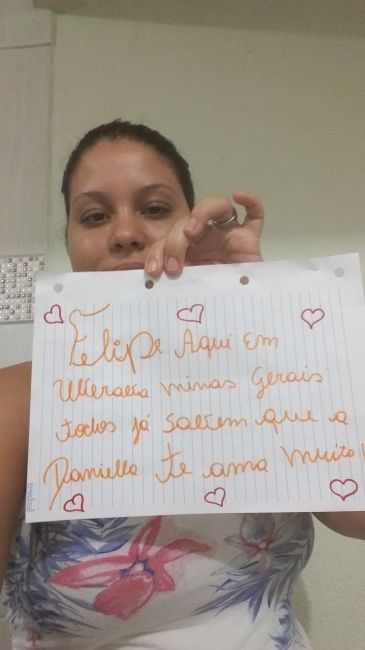 Felipe Aqui Em
Uberaba minas Gerais
todos já sabem que a
Daniella te ama muito!